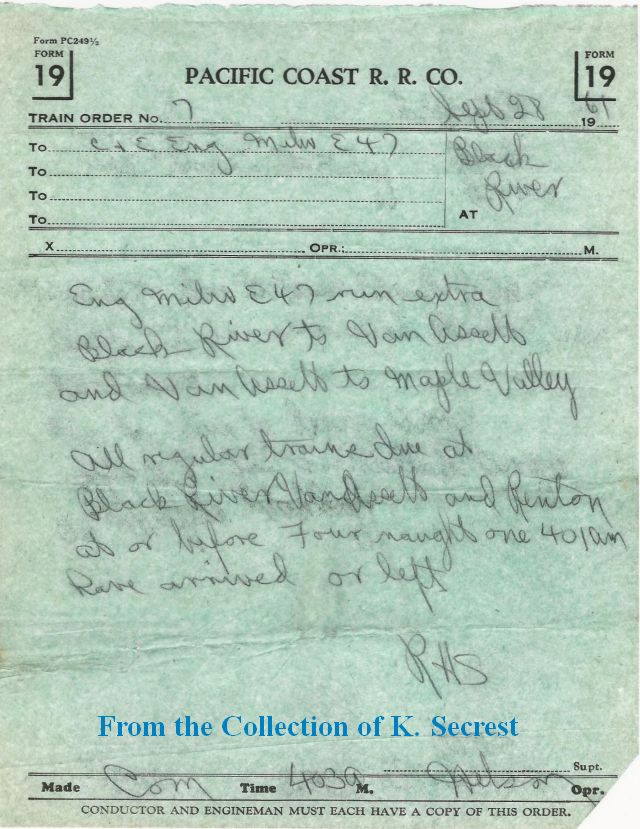 Form PC249½
FORM 19
FORM 19
PACIFIC COAST R. R. CO.
TRAIN ORDER No. 7 Sept 28 1961
To C & E Eng Milw E 47
To
To
To
AT Black River
X OPR.: M.
Eng Milw E47 run extra
Black River to Van Asselt
and Van Asselt to Maple Valley
All regular trains due at
Black River Van Asselt and Renton
at or before Four naught one 401am
have arrived or left
RHS
From the Collection of K. Secrest
Supt.
Made Com Time 403a M. Opr.
CONDUCTOR AND ENGINEMAN MUST EACH HAVE A COPY OF THIS ORDER.